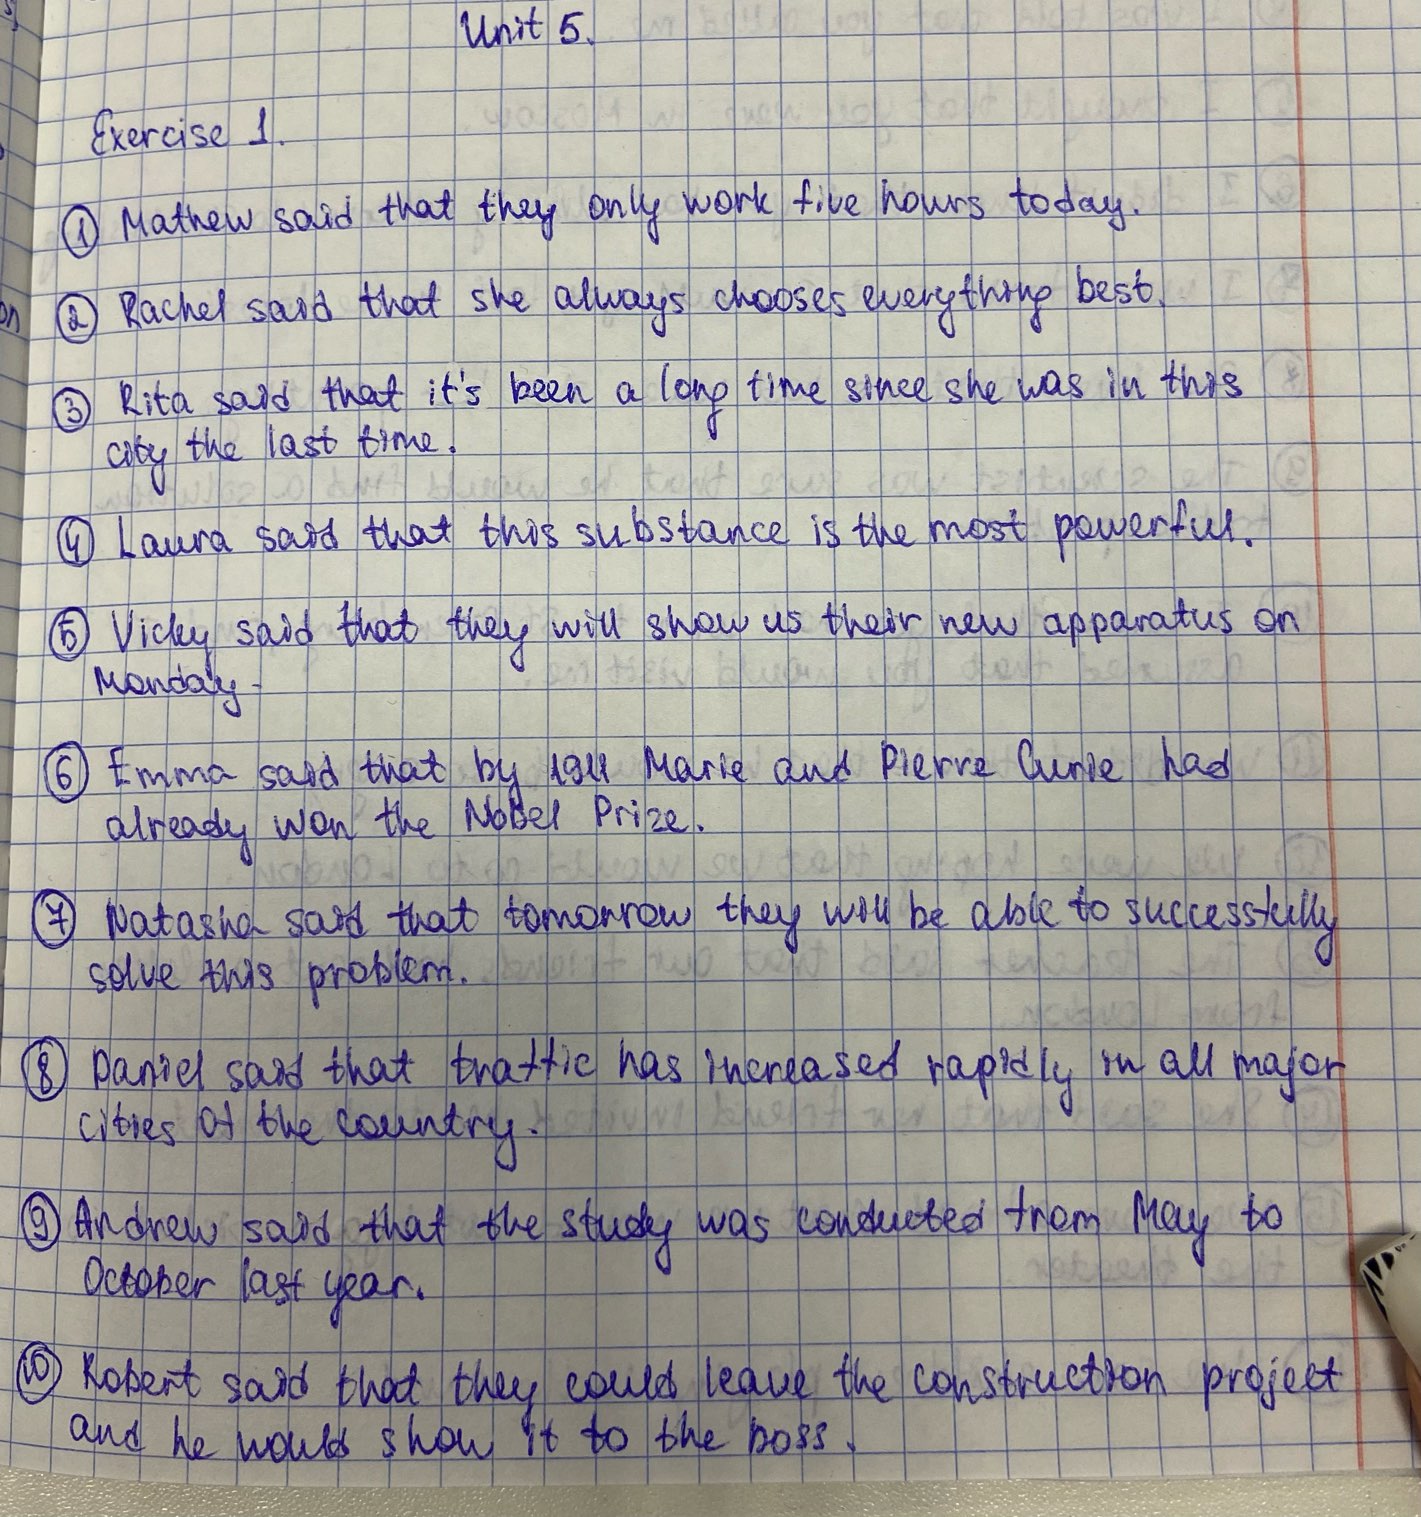 Unit 5.
Exercise 1.
① Mathew said that they only work five hours today.
② Rachel said that she always chooses everything best.
③ Rita said that it's been a long time since she was in this
city the last time.
④ Laura said that this substance is the most powerful.
⑤ Vicky said that they will show us their new apparatus on
Monday.
⑥ Emma said that by 1911 Marie and Pierre Curie had
already won the Nobel Prize.
⑦ Natasha said that tomorrow they will be able to successfully
solve this problem.
⑧ Daniel said that traffic has increased rapidly in all major
cities of the country.
⑨ Andrew said that the study was conducted from May to
October last year.
⑩ Robert said that they could leave the construction project
and he would show it to the boss.